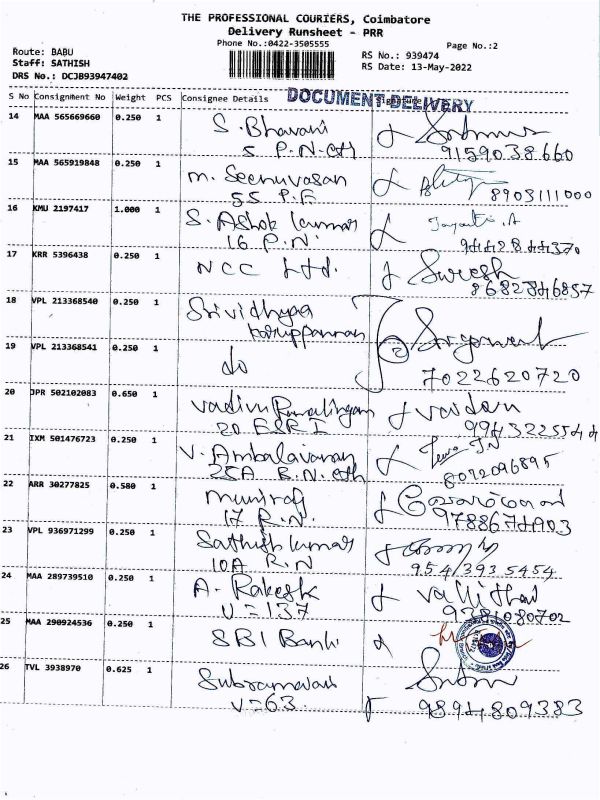 THE PROFESSIONAL COURIERS, Coimbatore
Delivery Runsheet - PRR
Phone No.:0422-3505555
Page No.:2
Route: BABU
Staff: SATHISH
DRS No.: DCJB93947402
RS No.: 939474
RS Date: 13-May-2022
S No Consignment No Weight PCS Consignee Details
DOCUMENT DELIVERY
14 MAA 565669660 0.250 1 S. Bhavani
5 P.N.
9159038660
15 MAA 565919848 0.250 1 M. Seenuvasan
55 P.F
8903111000
16 KMU 2197417 1.000 1 S. Ashok kumar
16 P.N.
9442844370
17 KRR 5396438 0.250 1 NCC Ltd. Suresh
8682846857
18 VPL 213368540 0.250 1 Srividhyaa
karuppannan
19 VPL 213368541 0.250 1 do
7022620720
20 JPR 502102083 0.650 1
20 ESR I
21 IXM 501476723 0.250 1 V. Ambalavanan
25A
8072096895
22 ARR 30277825 0.580 1 Muniraj
17 R.N.
23 VPL 936971299 0.250 1 Sathish kumar
10A R.N
24 MAA 289739510 0.250 1 A. Rakesh
V=137
9381080702
25 MAA 290924536 0.250 1 SBI Bank
26 TVL 3938970 0.625 1
V=63
9894809383